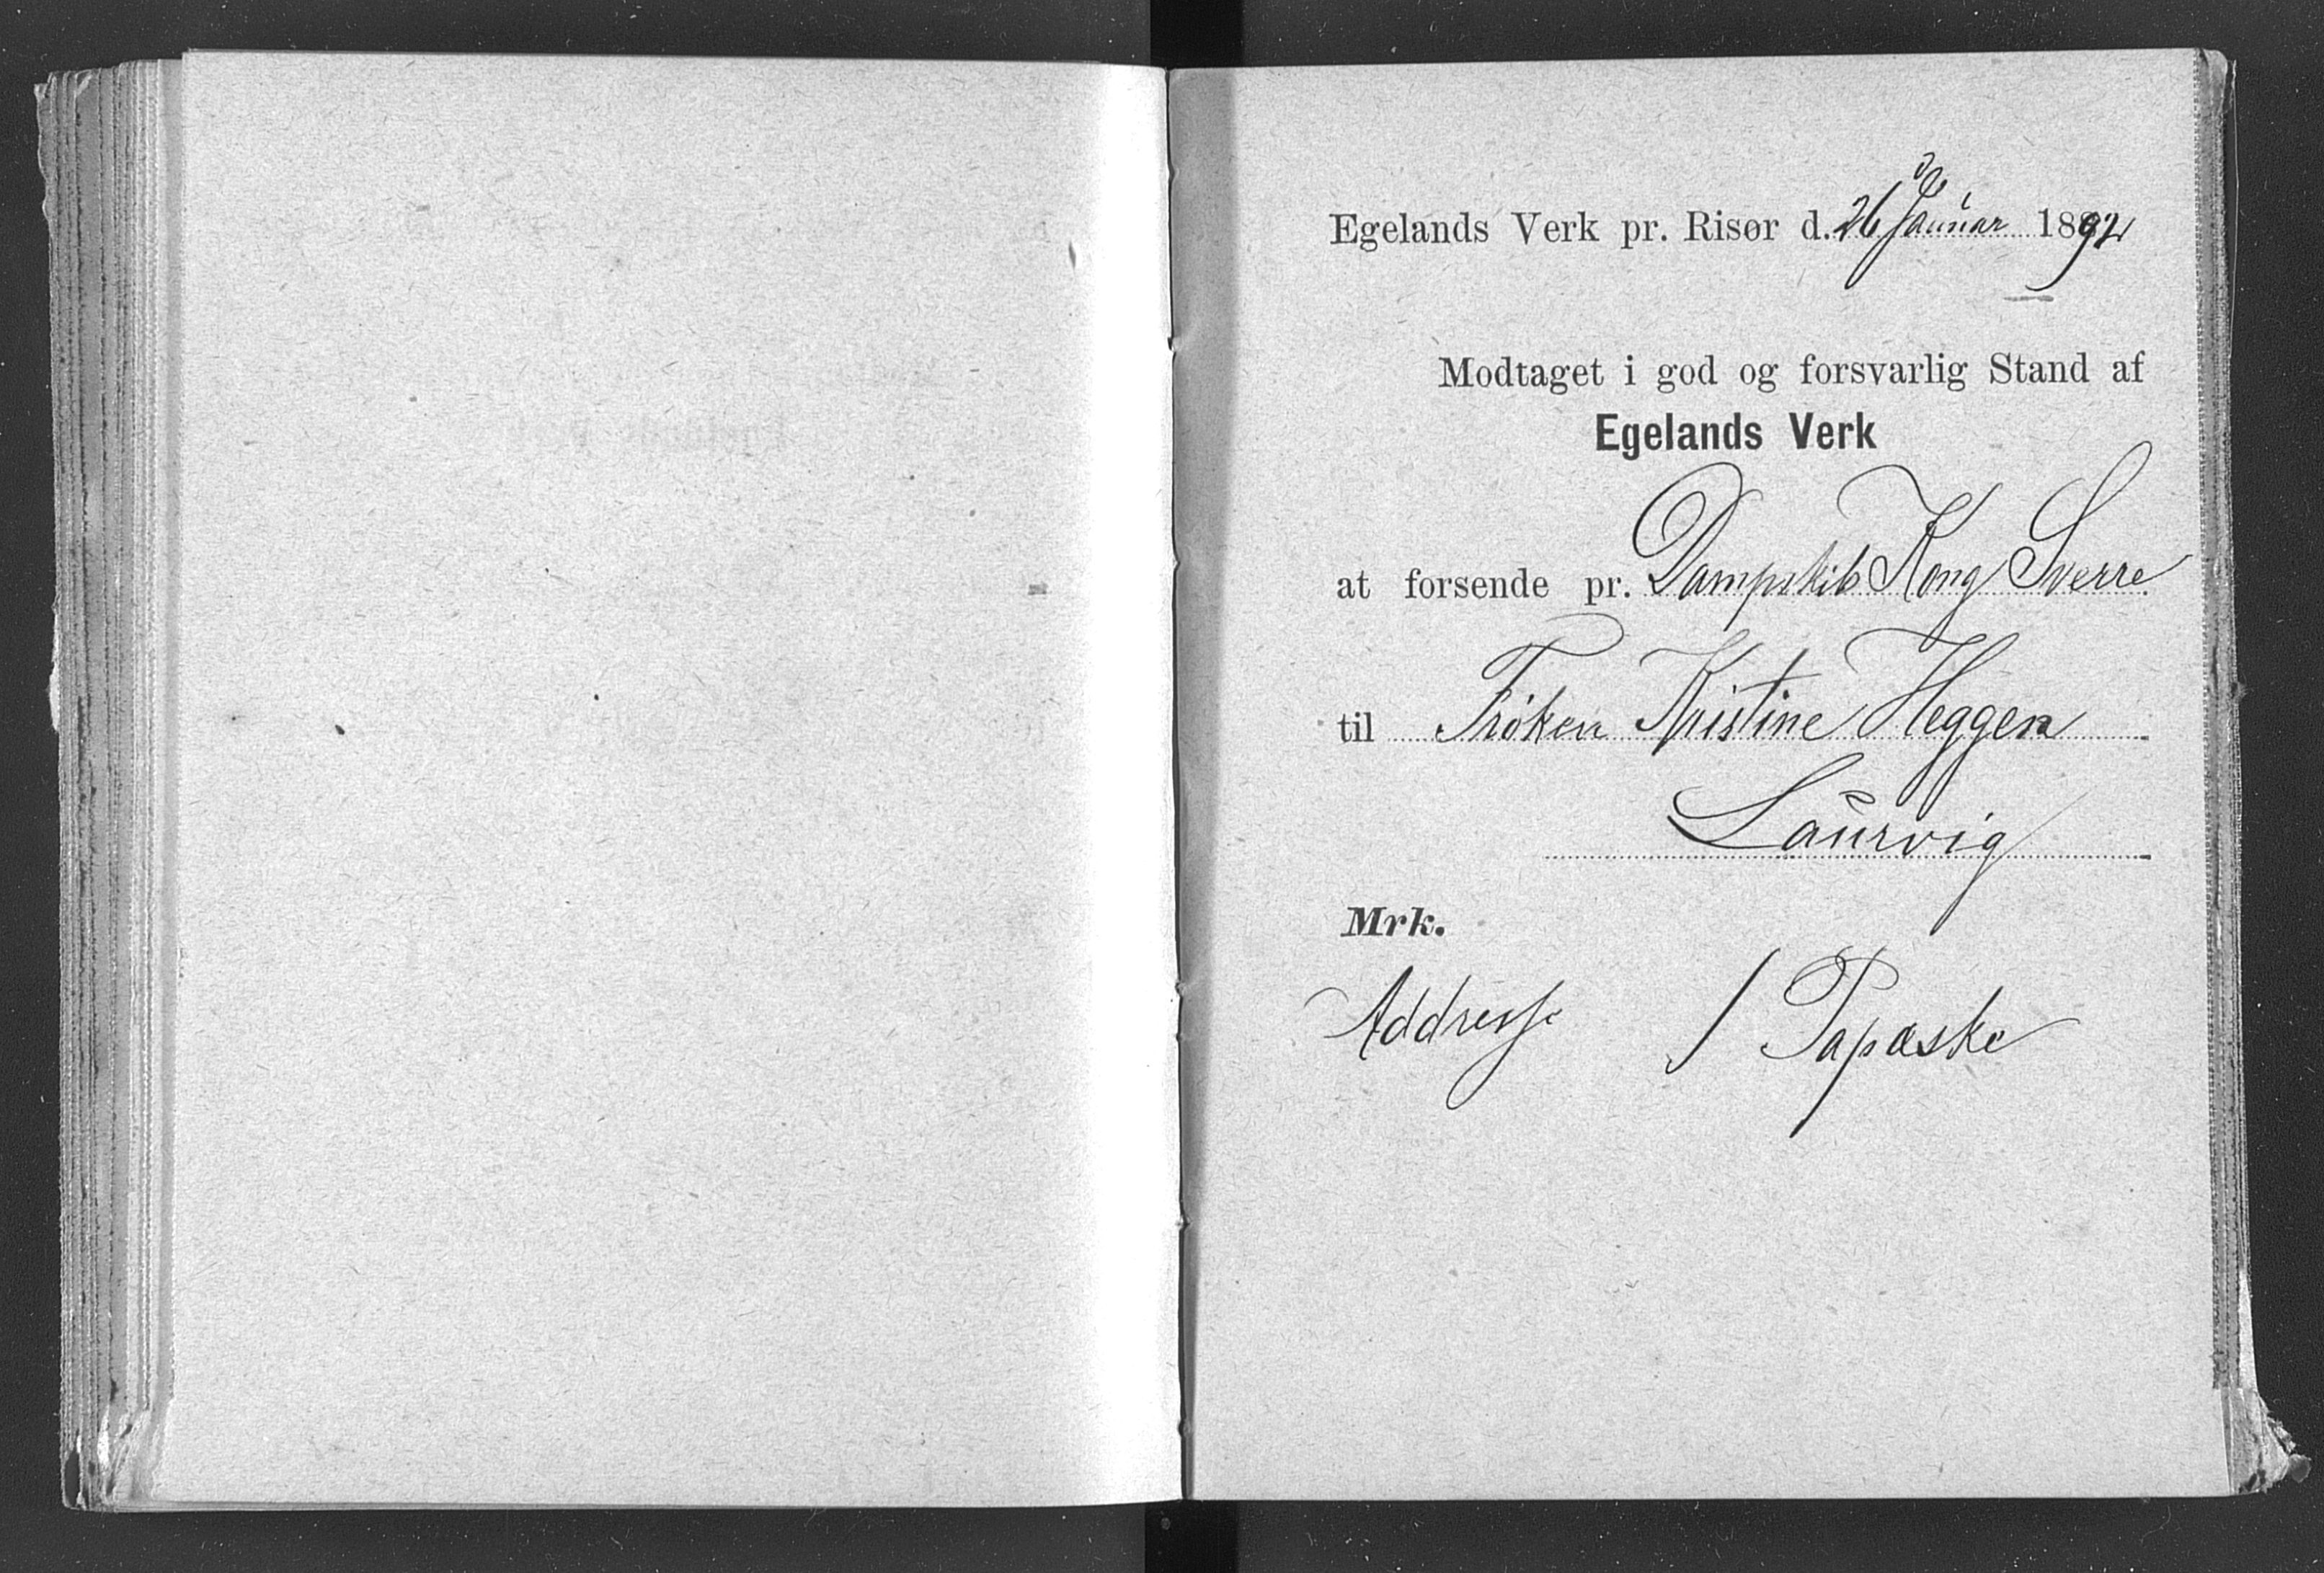 Egelands Verk pr. Risør d. 26 Januar 1892
Modtaget i god og forsvarlig Stand af
Egelands Verk
at forsende pr. Dampskib Kong Sverre
til Frøken Kristine Heggen
Laurvig
Mrk.
Addresse 1 Papæske